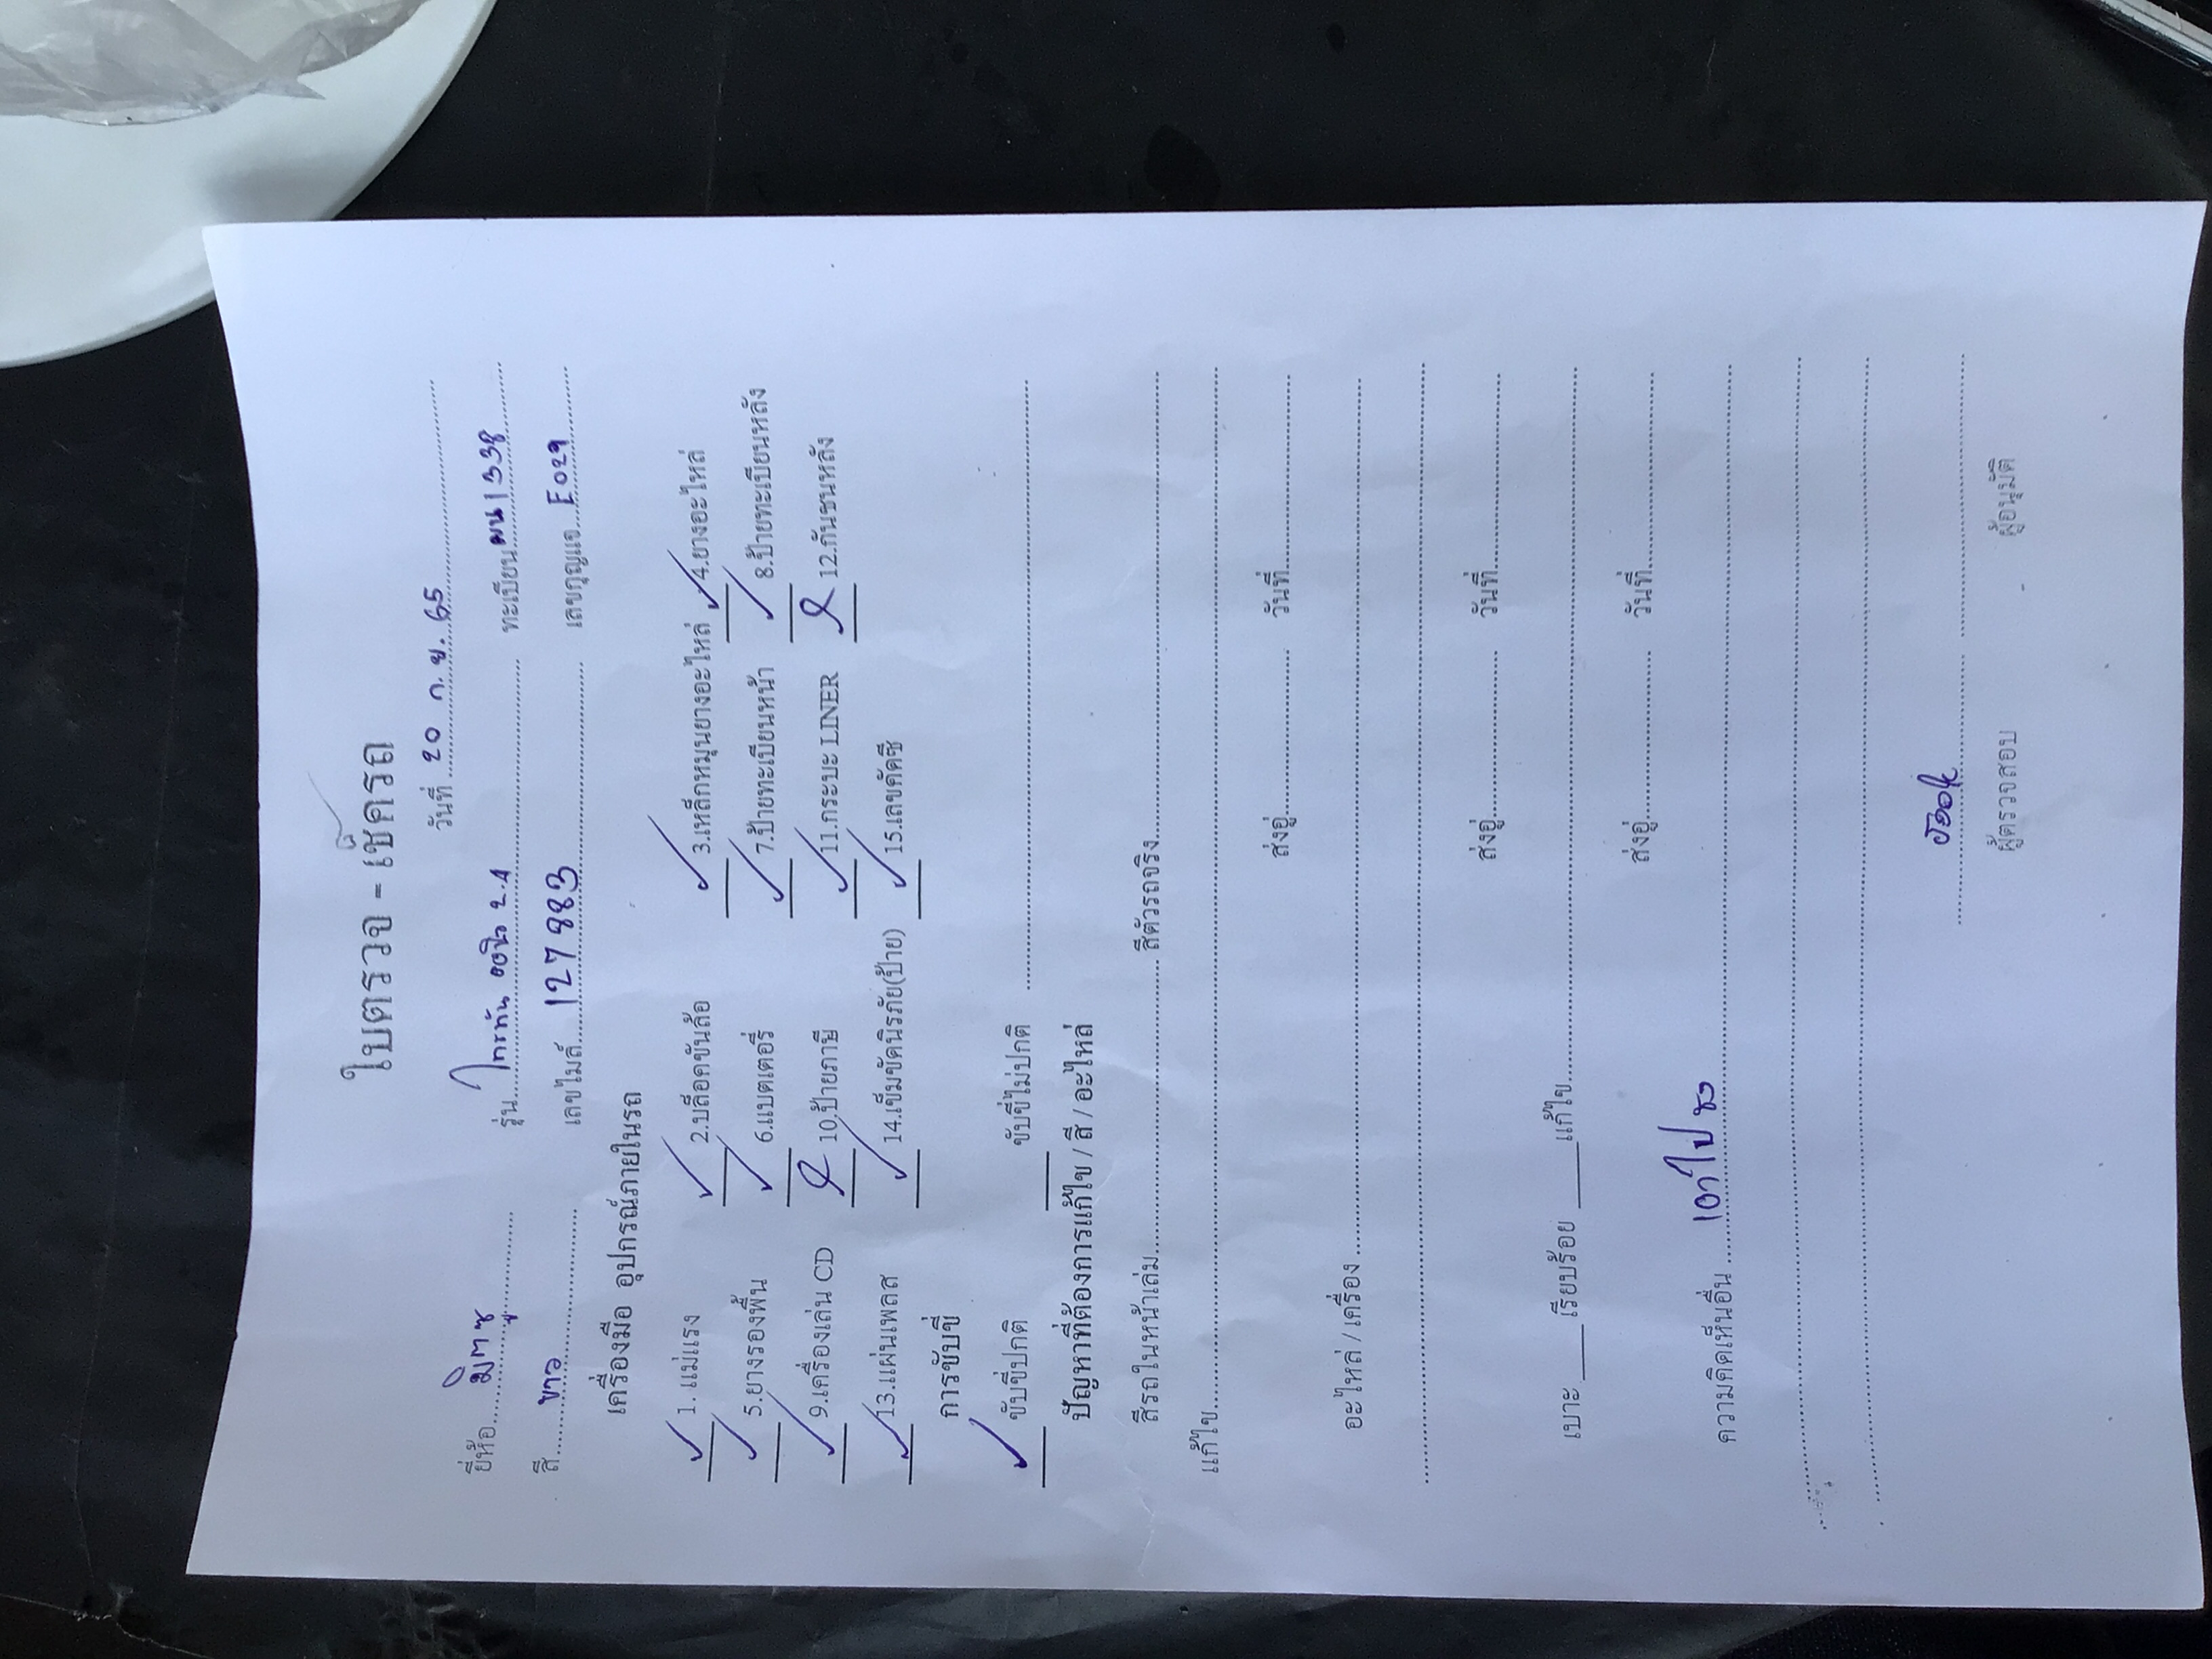 ใบตรวจ - เช็ครถ
วันที่ 20 ก.ย. 65
ยี่ห้อ มิตซู รุ่น ไทรทัน 2.4 ทะเบียน ผน 1338
สี ขาว เลขไมล์ 127883 เลขกุญแจ E029
เครื่องมือ อุปกรณ์ภายในรถ
1. แม่แรง 2.บล็อคขันล้อ 3.เหล็กหมุนยางอะไหล่ 4.ยางอะไหล่
5.ยางรองพื้น 6.แบตเตอรี่ 7.ป้ายทะเบียนหน้า 8.ป้ายทะเบียนหลัง
9.เครื่องเล่น CD 10.ป้ายภาษี 11.กระบะ LINER 12.กันชนหลัง
13.แผ่นเพลส 14.เข็มขัดนิรภัย(ป้าย) 15.เลขคัคซี
การขับขี่
ขับขี่ปกติ ขับขี่ไม่ปกติ
ปัญหาที่ต้องการแก้ไข / สี / อะไหล่
สีรถในหน้าเล่ม สีตัวรถจริง
แก้ไข
ส่งอู่ วันที่
อะไหล่ / เครื่อง
ส่งอู่ วันที่
เบาะ เรียบร้อย แก้ไข
ส่งอู่ วันที่
ความคิดเห็นอื่น เอาไป
ผู้ตรวจสอบ ผู้อนุมัติ